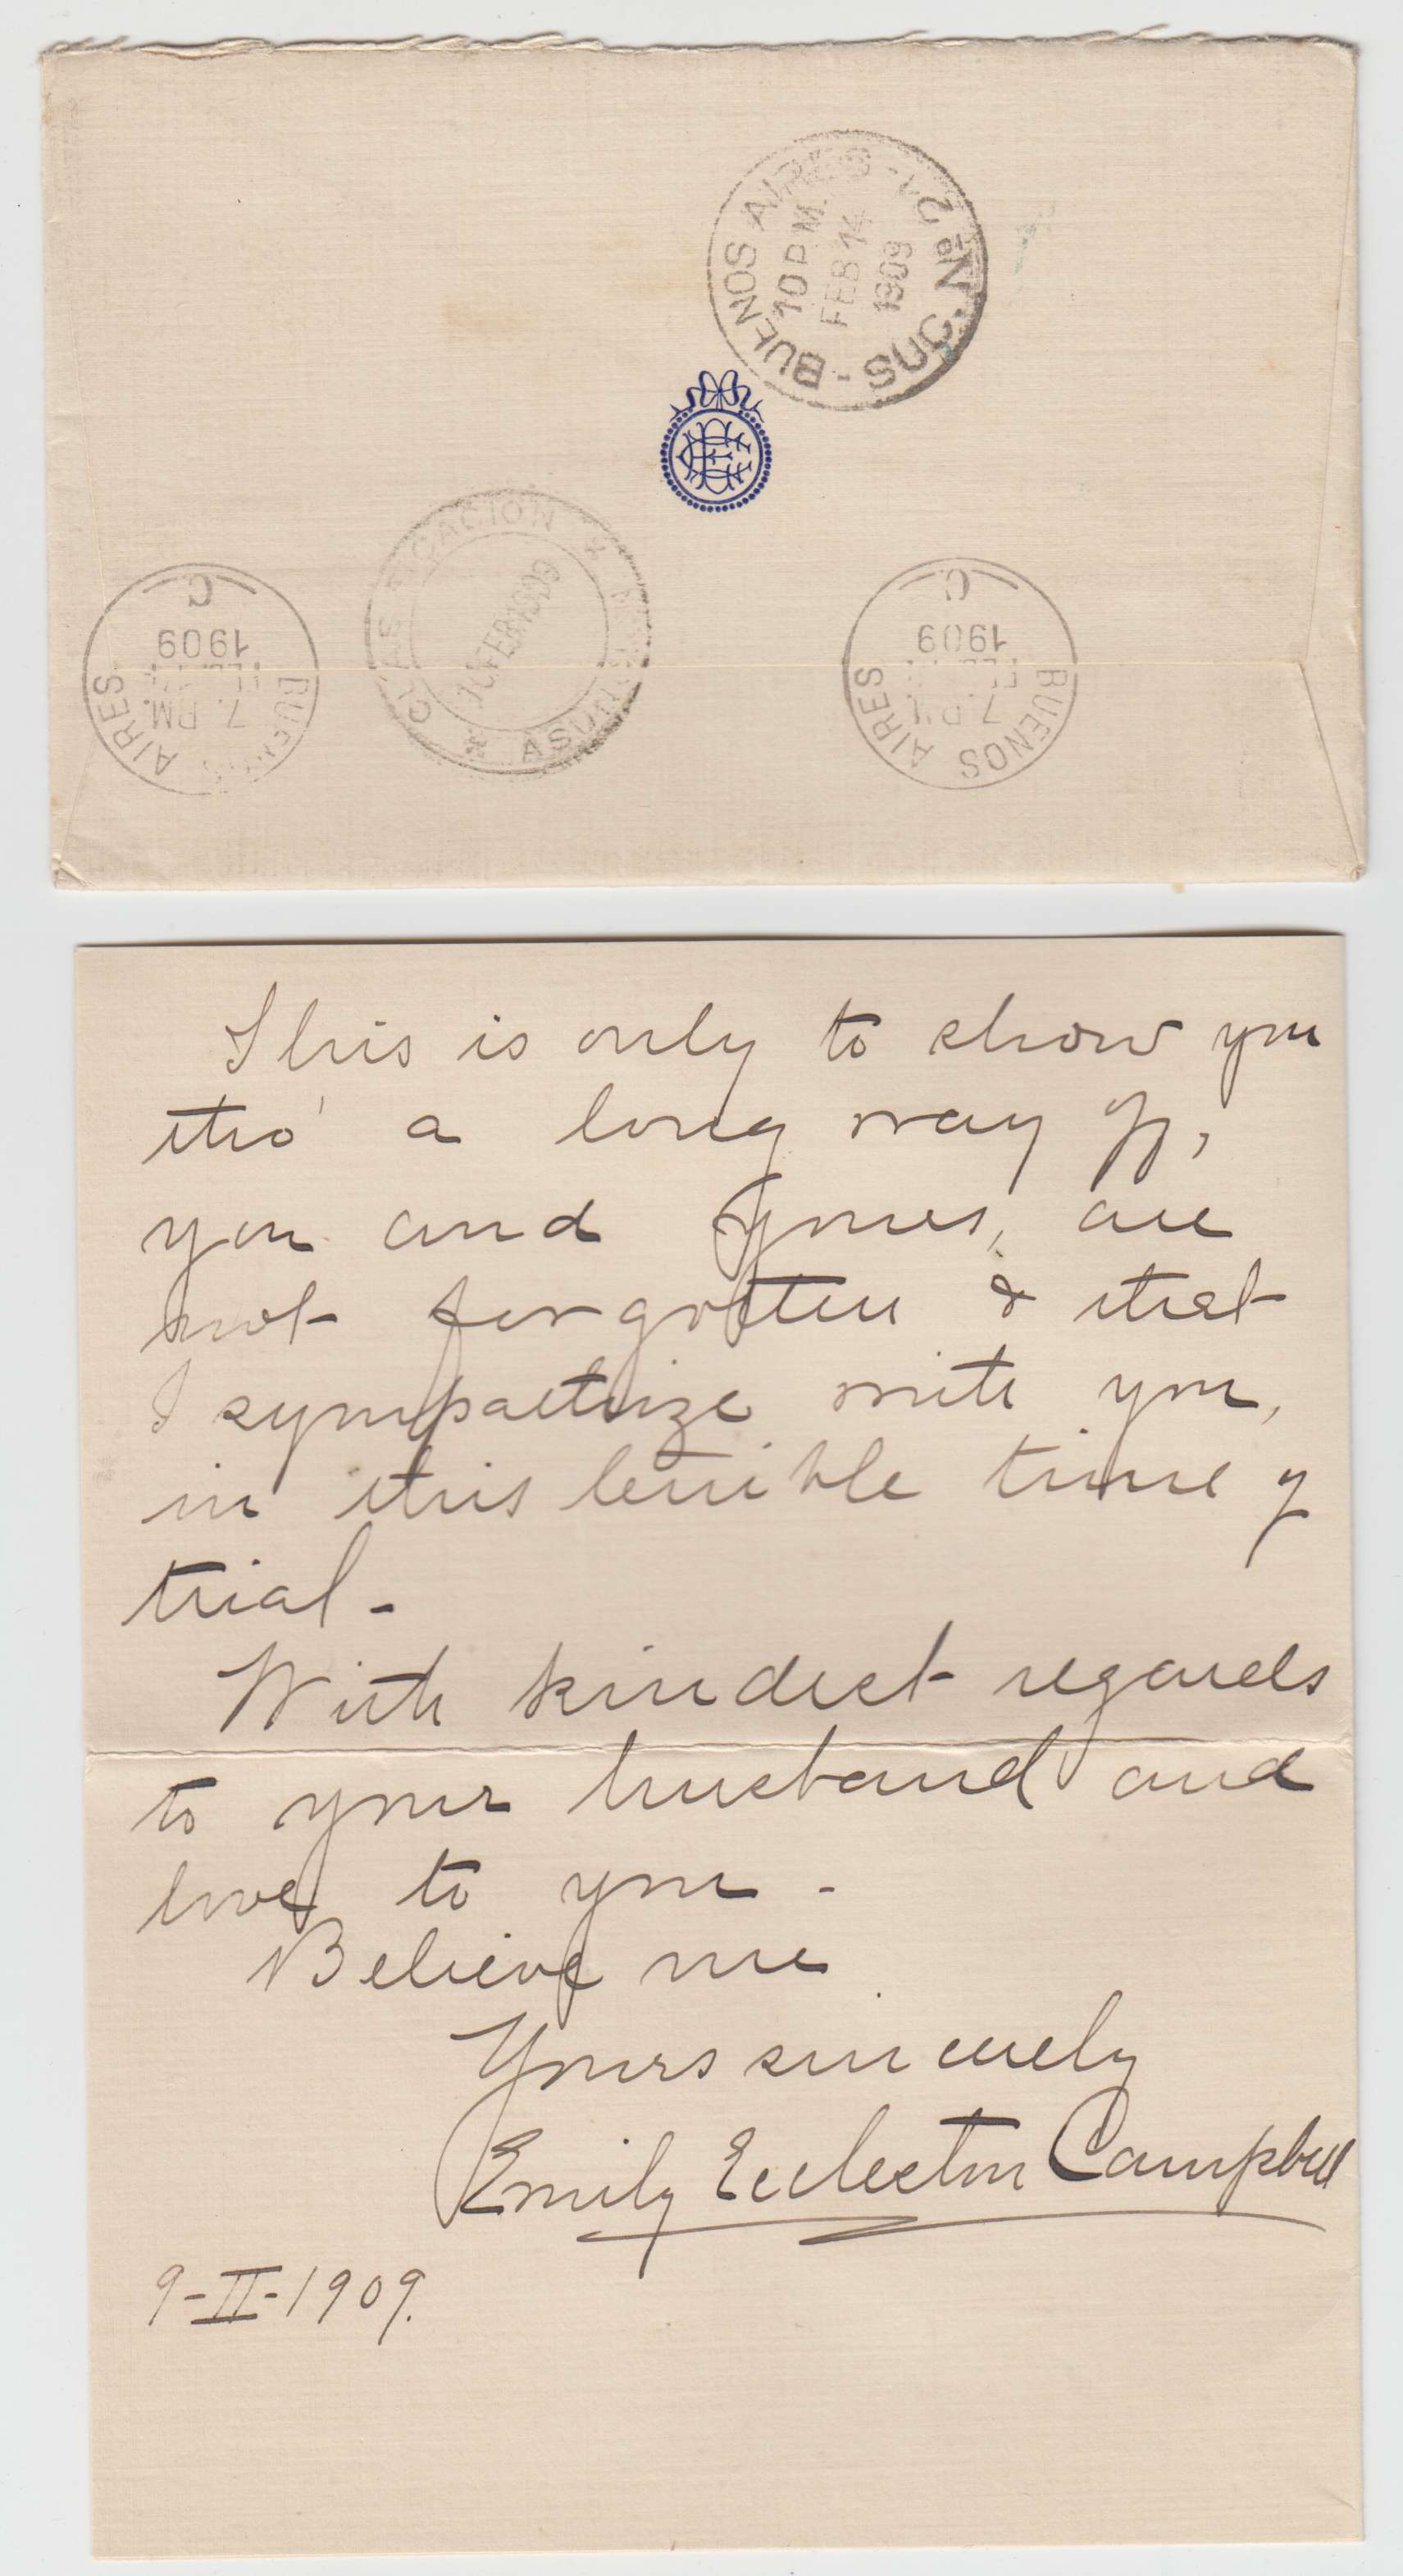 BUENOS AIRES - SUC. Nº 21
10 P.M.
FEB 14
1909
CLASIFICACION * ASUNCION *
10 FEB 1909
BUENOS AIRES
7. PM.
1909
C
BUENOS AIRES
7. PM.
1909
C
This is only to show you
tho' a long way off,
you and yours, are
not forgotten & that
I sympathize with you,
in this terrible time of
trial -
With kindest regards
to your husband and
love to you -
Believe me
Yours sincerely
Emily Eccleston Campbell
9-II-1909.